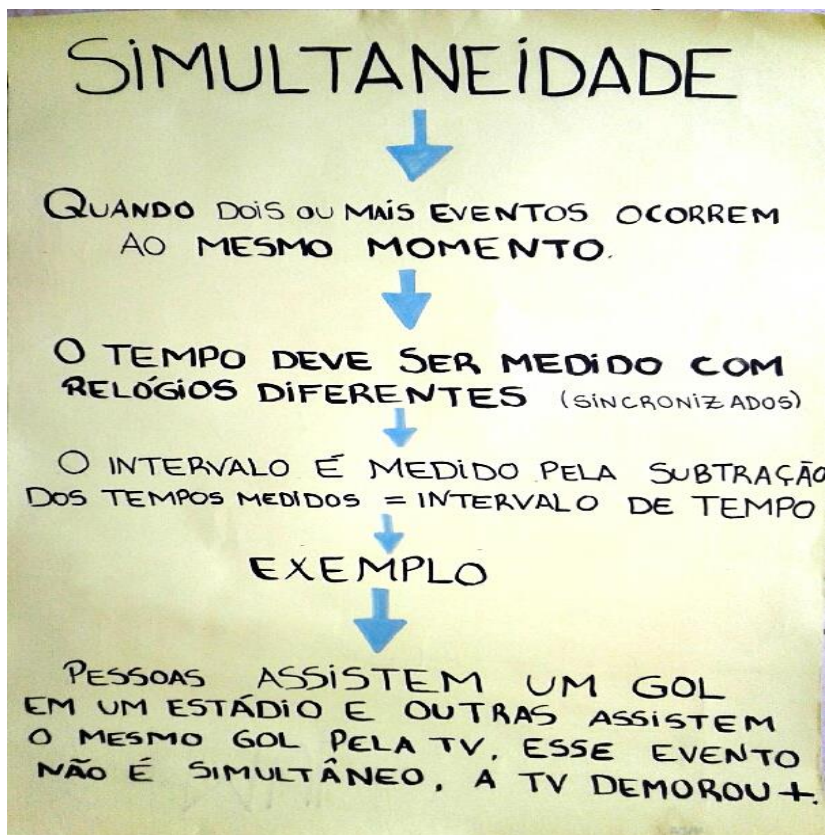 SIMULTANEIDADE
QUANDO DOIS OU MAIS EVENTOS OCORREM
AO MESMO MOMENTO.
O TEMPO DEVE SER MEDIDO COM
RELÓGIOS DIFERENTES (SINCRONIZADOS)
O INTERVALO É MEDIDO PELA SUBTRAÇÃO
DOS TEMPOS MEDIDOS = INTERVALO DE TEMPO
EXEMPLO
PESSOAS ASSISTEM UM GOL
EM UM ESTÁDIO E OUTRAS ASSISTEM
O MESMO GOL PELA TV. ESSE EVENTO
NÃO É SIMULTÂNEO, A TV DEMOROU +.